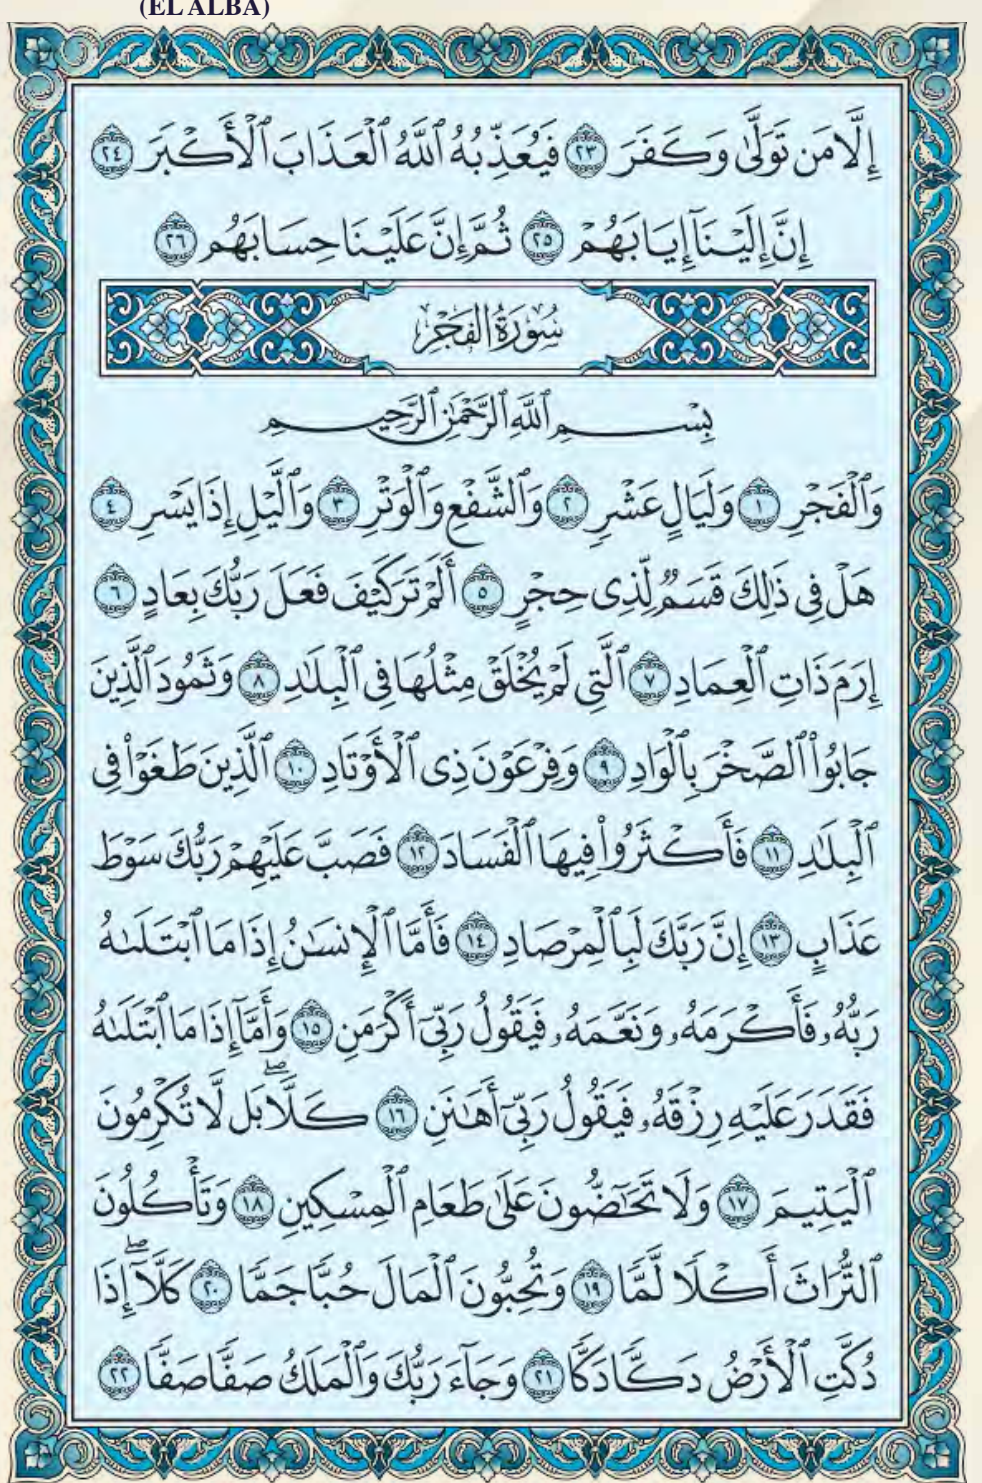 (EL ALBA)
إِلَّا مَن تَوَلَّىٰ وَكَفَرَ ٢٣ فَيُعَذِّبُهُ ٱللَّهُ ٱلْعَذَابَ ٱلْأَكْبَرَ ٢٤
إِنَّ إِلَيْنَآ إِيَابَهُمْ ٢٥ ثُمَّ إِنَّ عَلَيْنَا حِسَابَهُم ٢٦
سُورَةُ الفَجْرِ
بِسْمِ ٱللَّهِ ٱلرَّحْمَٰنِ ٱلرَّحِيمِ
وَٱلْفَجْرِ ١ وَلَيَالٍ عَشْرٍ ٢ وَٱلشَّفْعِ وَٱلْوَتْرِ ٣ وَٱلَّيْلِ إِذَا يَسْرِ ٤
هَلْ فِى ذَٰلِكَ قَسَمٌ لِّذِى حِجْرٍ ٥ أَلَمْ تَرَ كَيْفَ فَعَلَ رَبُّكَ بِعَادٍ ٦
إِرَمَ ذَاتِ ٱلْعِمَادِ ٧ ٱلَّتِى لَمْ يُخْلَقْ مِثْلُهَا فِى ٱلْبِلَٰدِ ٨ وَثَمُودَ ٱلَّذِينَ
جَابُوا۟ ٱلصَّخْرَ بِٱلْوَادِ ٩ وَفِرْعَوْنَ ذِى ٱلْأَوْتَادِ ١٠ ٱلَّذِينَ طَغَوْا۟ فِى
ٱلْبِلَٰدِ ١١ فَأَكْثَرُوا۟ فِيهَا ٱلْفَسَادَ ١٢ فَصَبَّ عَلَيْهِمْ رَبُّكَ سَوْطَ
عَذَابٍ ١٣ إِنَّ رَبَّكَ لَبِٱلْمِرْصَادِ ١٤ فَأَمَّا ٱلْإِنسَٰنُ إِذَا مَا ٱبْتَلَىٰهُ
رَبُّهُۥ فَأَكْرَمَهُۥ وَنَعَّمَهُۥ فَيَقُولُ رَبِّىٓ أَكْرَمَنِ ١٥ وَأَمَّآ إِذَا مَا ٱبْتَلَىٰهُ
فَقَدَرَ عَلَيْهِ رِزْقَهُۥ فَيَقُولُ رَبِّىٓ أَهَٰنَنِ ١٦ كَلَّا ۖ بَل لَّا تُكْرِمُونَ
ٱلْيَتِيمَ ١٧ وَلَا تَحَٰٓضُّونَ عَلَىٰ طَعَامِ ٱلْمِسْكِينِ ١٨ وَتَأْكُلُونَ
ٱلتُّرَاثَ أَكْلًا لَّمًّا ١٩ وَتُحِبُّونَ ٱلْمَالَ حُبًّا جَمًّا ٢٠ كَلَّآ ۖ إِذَا
دُكَّتِ ٱلْأَرْضُ دَكًّا دَكًّا ٢١ وَجَآءَ رَبُّكَ وَٱلْمَلَكُ صَفًّا صَفًّا ٢٢